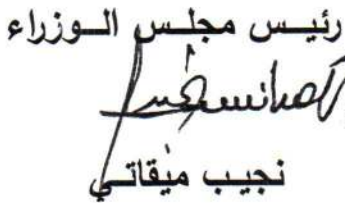 رئيس مجلس الوزراء
نجيب ميقاتي